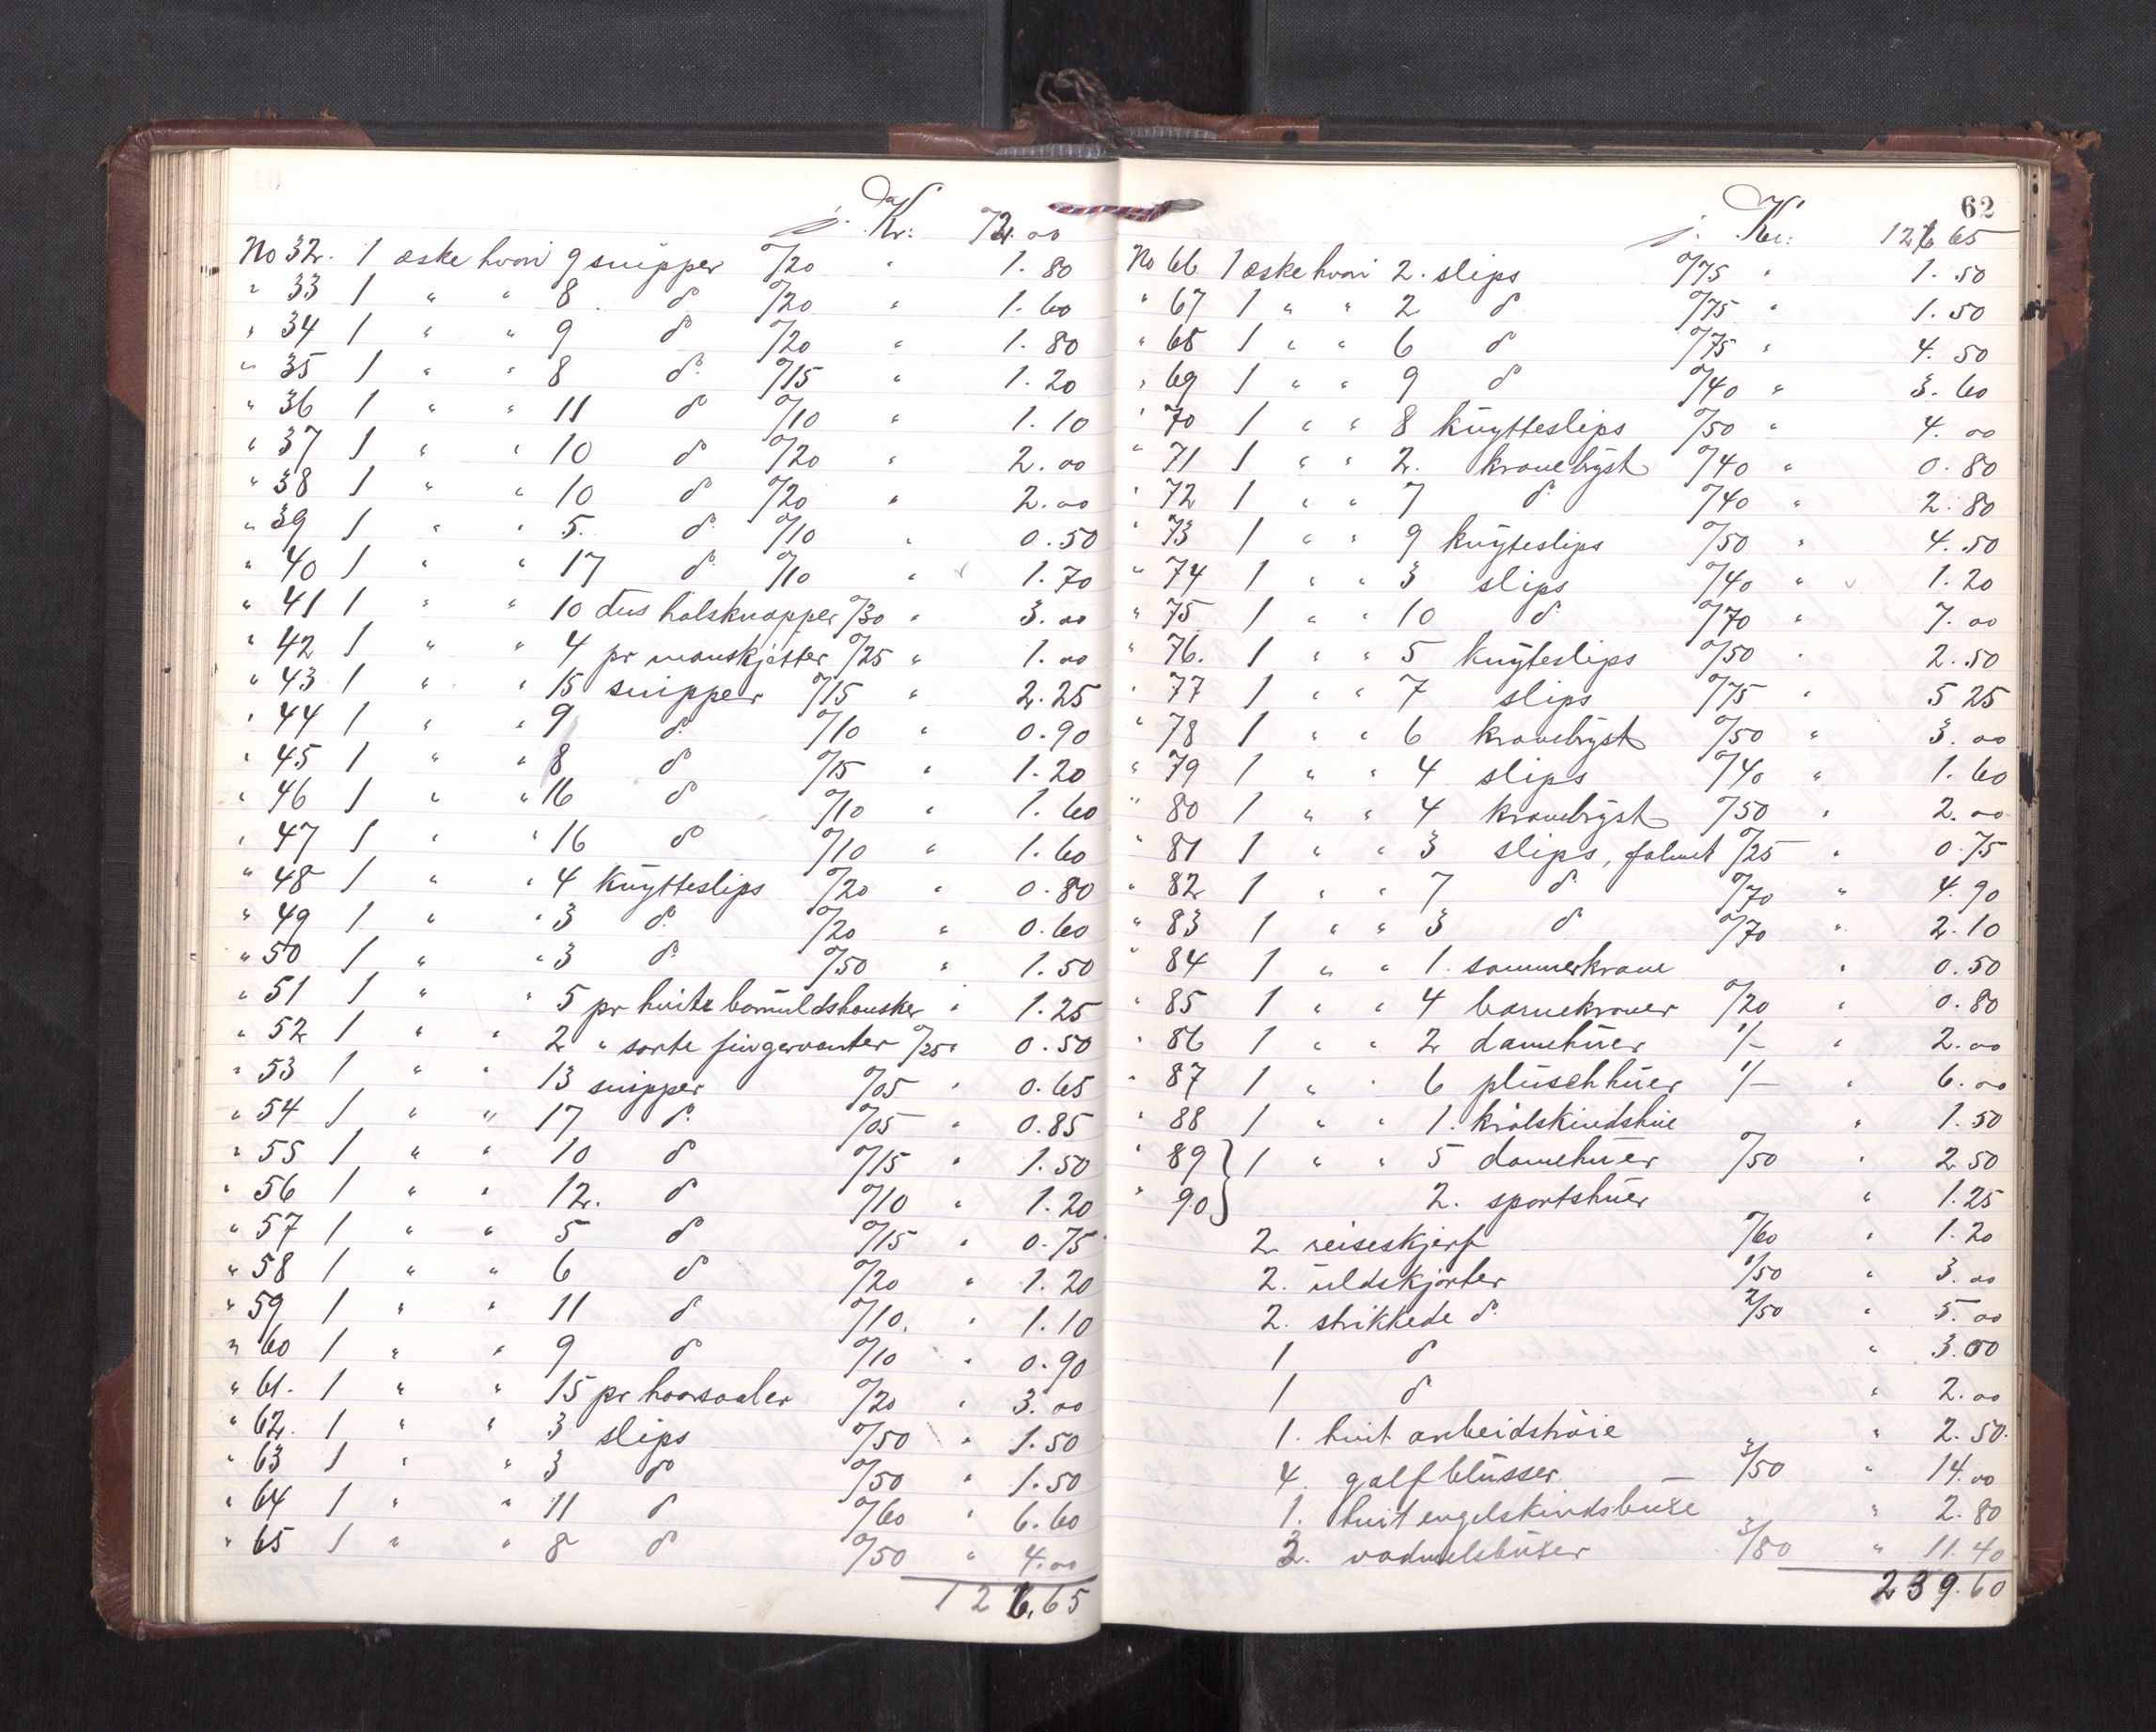 Kr: 72.00
No 32. 1 æske hvori 9 snipper 0/20 " 1.80
" 33 1 " " 8 do 0/20 " 1.60
" 34 1 " " 9 do 0/20 " 1.80
" 35 1 " " 8 do 0/15 " 1.20
" 36 1 " " 11 do 0/10 " 1.10
" 37 1 " " 10 do 0/20 " 2.00
" 38 1 " " 10 do 0/20 " 2.00
" 39 1 " " 5. do 0/10 " 0.50
" 40 1 " " 17 do 0/10 " 1.70
" 41 1 " " 10 dus halsknapper 0/30 " 3.00
" 42 1 " " 4 pr manskjetter 0/25 " 1.00
" 43 1 " " 15 snipper 0/15 " 2.25
" 44 1 " " 9 do 0/10 " 0.90
" 45 1 " " 8 do 0/15 " 1.20
" 46 1 " " 16 do 0/10 " 1.60
" 47 1 " " 16 do 0/10 " 1.60
" 48 1 " " 4 knytteslips 0/20 " 0.80
" 49 1 " " 3 do 0/20 " 0.60
" 50 1 " " 3 do 0/50 " 1.50
" 51 1 " " 5 pr hvite bomuldshansker " 1.25
" 52 1 " " 2 " sorte fingervanter 0/25 " 0.50
" 53 1 " " 13 snipper 0/05 " 0.65
" 54 1 " " 17 do 0/05 " 0.85
" 55 1 " " 10 do 0/15 " 1.50
" 56 1 " " 12. do 0/10 " 1.20
" 57 1 " " 5 do 0/15 " 0.75
" 58 1 " " 6 do 0/20 " 1.20
" 59 1 " " 11 do 0/10. " 1.10
" 60 1 " " 9 do 0/10 " 0.90
" 61. 1 " " 15 pr haarsaaler 0/20 " 3.00
" 62. 1 " " 3 slips 0/50 " 1.50
" 63 1 " " 3 do 0/50 " 1.50
" 64 1 " " 11 do 0/60 " 6.60
" 65 1 " " 8 do 0/50 " 4.00
126.65
62
Kr: 126 65
No 66 1 æske hvori 2. slips 0/75 " 1.50
" 67 1 " " 2 do 0/75 " 1.50
" 68 1 " " 6 do 0/75 " 4.50
" 69 1 " " 9 do 0/40 " 3.60
" 70 1 " " 8 knytteslips 0/50 " 4.00
" 71 1 " " 2. kravebryst 0/40 " 0.80
" 72 1 " " 7 do 0/40 " 2.80
" 73 1 " " 9 knyteslips 0/50 " 4.50
" 74 1 " " 3 slips 0/40 " 1.20
" 75 1 " " 10 do 0/70 " 7.00
" 76. 1 " " 5 knyteslips 0/50 " 2.50
" 77 1 " " 7 slips 0/75 " 5 25
" 78 1 " " 6 kravebryst 0/50 " 3.00
" 79 1 " " 4 slips 0/40 " 1.60
" 80 1 " " 4 kravebryst 0/50 " 2.00
" 81 1 " " 3 slips, falmet 0/25 " 0.75
" 82 1 " " 7 do 0/70 " 4.90
" 83 1 " " 3 do 0/70 " 2.10
" 84 1 " " 1. sommerkrave " 0.50
" 85 1 " " 4 barnekraver 0/20 " 0.80
" 86 1 " " 2 damehuer 1/- " 2.00
" 87 1 " " 6 plüschhuer 1/- " 6.00
" 88 1 " " 1. krølskindshue " 1.50
" 89 } 1 " " 5 damehuer 0/50 " 2.50
" 90 } 2. sportshuer " 1.25
2 reiseskjerf 0/60 " 1.20
2. uldskjorter 1/50 " 3.00
2. strikkede do 2/50 " 5.00
1 do " 3.00
1 do " 2.00
1. hvit arbeidstrøie " 2.50.
4. golfblusser 3/50 " 14.00
1. hvit engelskindsbuxe " 2.80
3. vadmelsbuxer 3/80 " 11.40
239.60